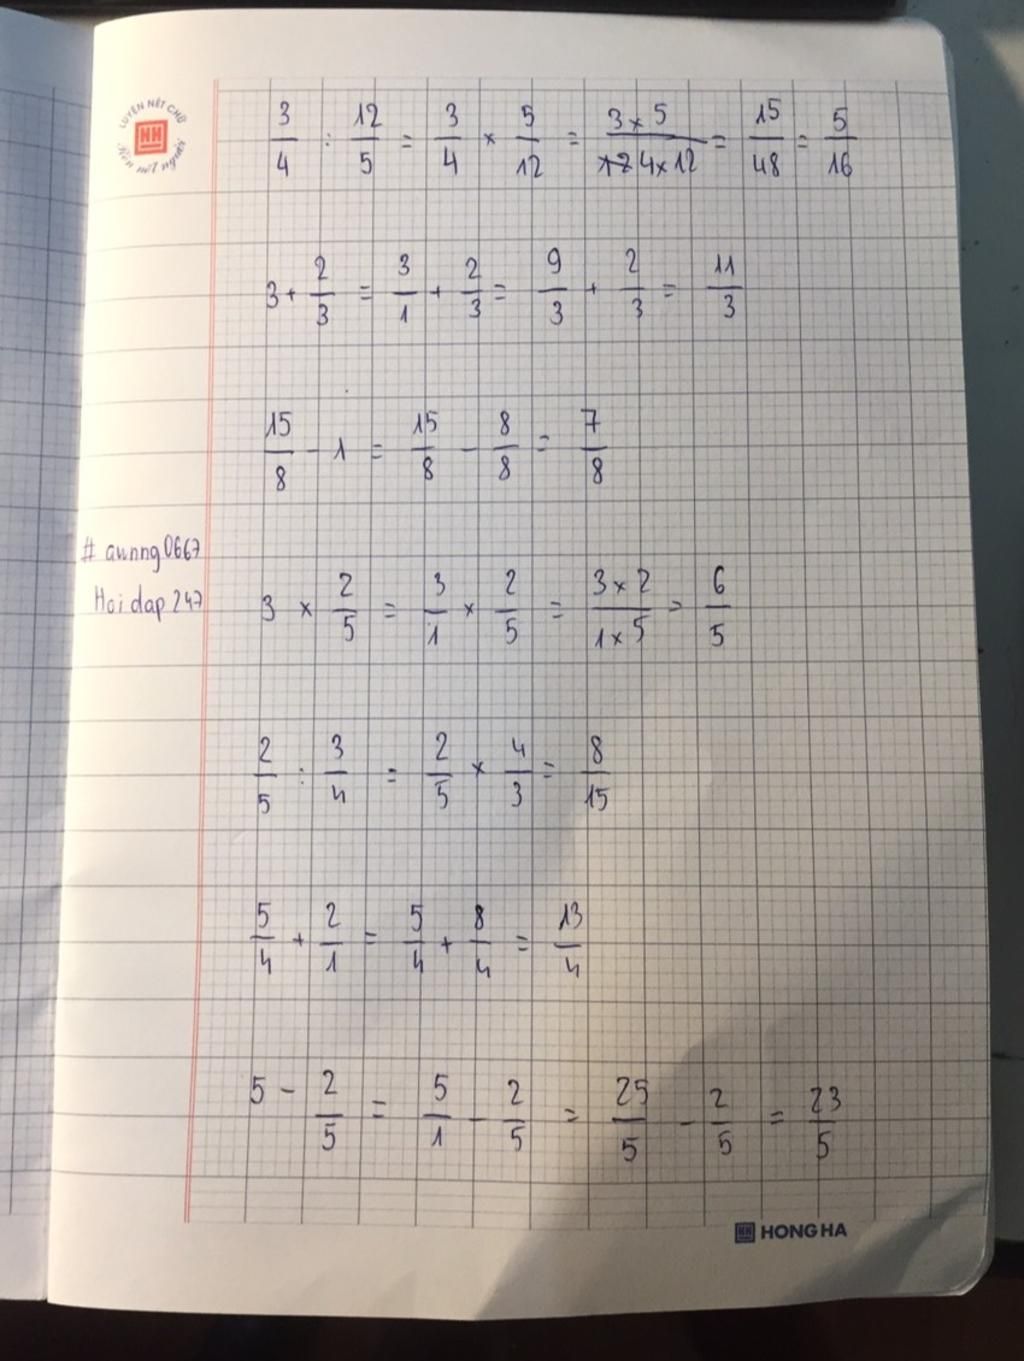 LUYỆN NÉT CHỮ
HH
Rèn nết người
3/4 : 12/5 = 3/4 × 5/12 = 3×5/4×12 = 15/48 = 5/16
3 + 2/3 = 3/1 + 2/3 = 9/3 + 2/3 = 11/3
15/8 - 1 = 15/8 - 8/8 = 7/8
# awnng0667
Hoidap247
3 × 2/5 = 3/1 × 2/5 = 3×2/1×5 = 6/5
2/5 : 3/4 = 2/5 × 4/3 = 8/15
5/4 + 2/1 = 5/4 + 8/4 = 13/4
5 - 2/5 = 5/1 - 2/5 = 25/5 - 2/5 = 23/5
HH HONG HA